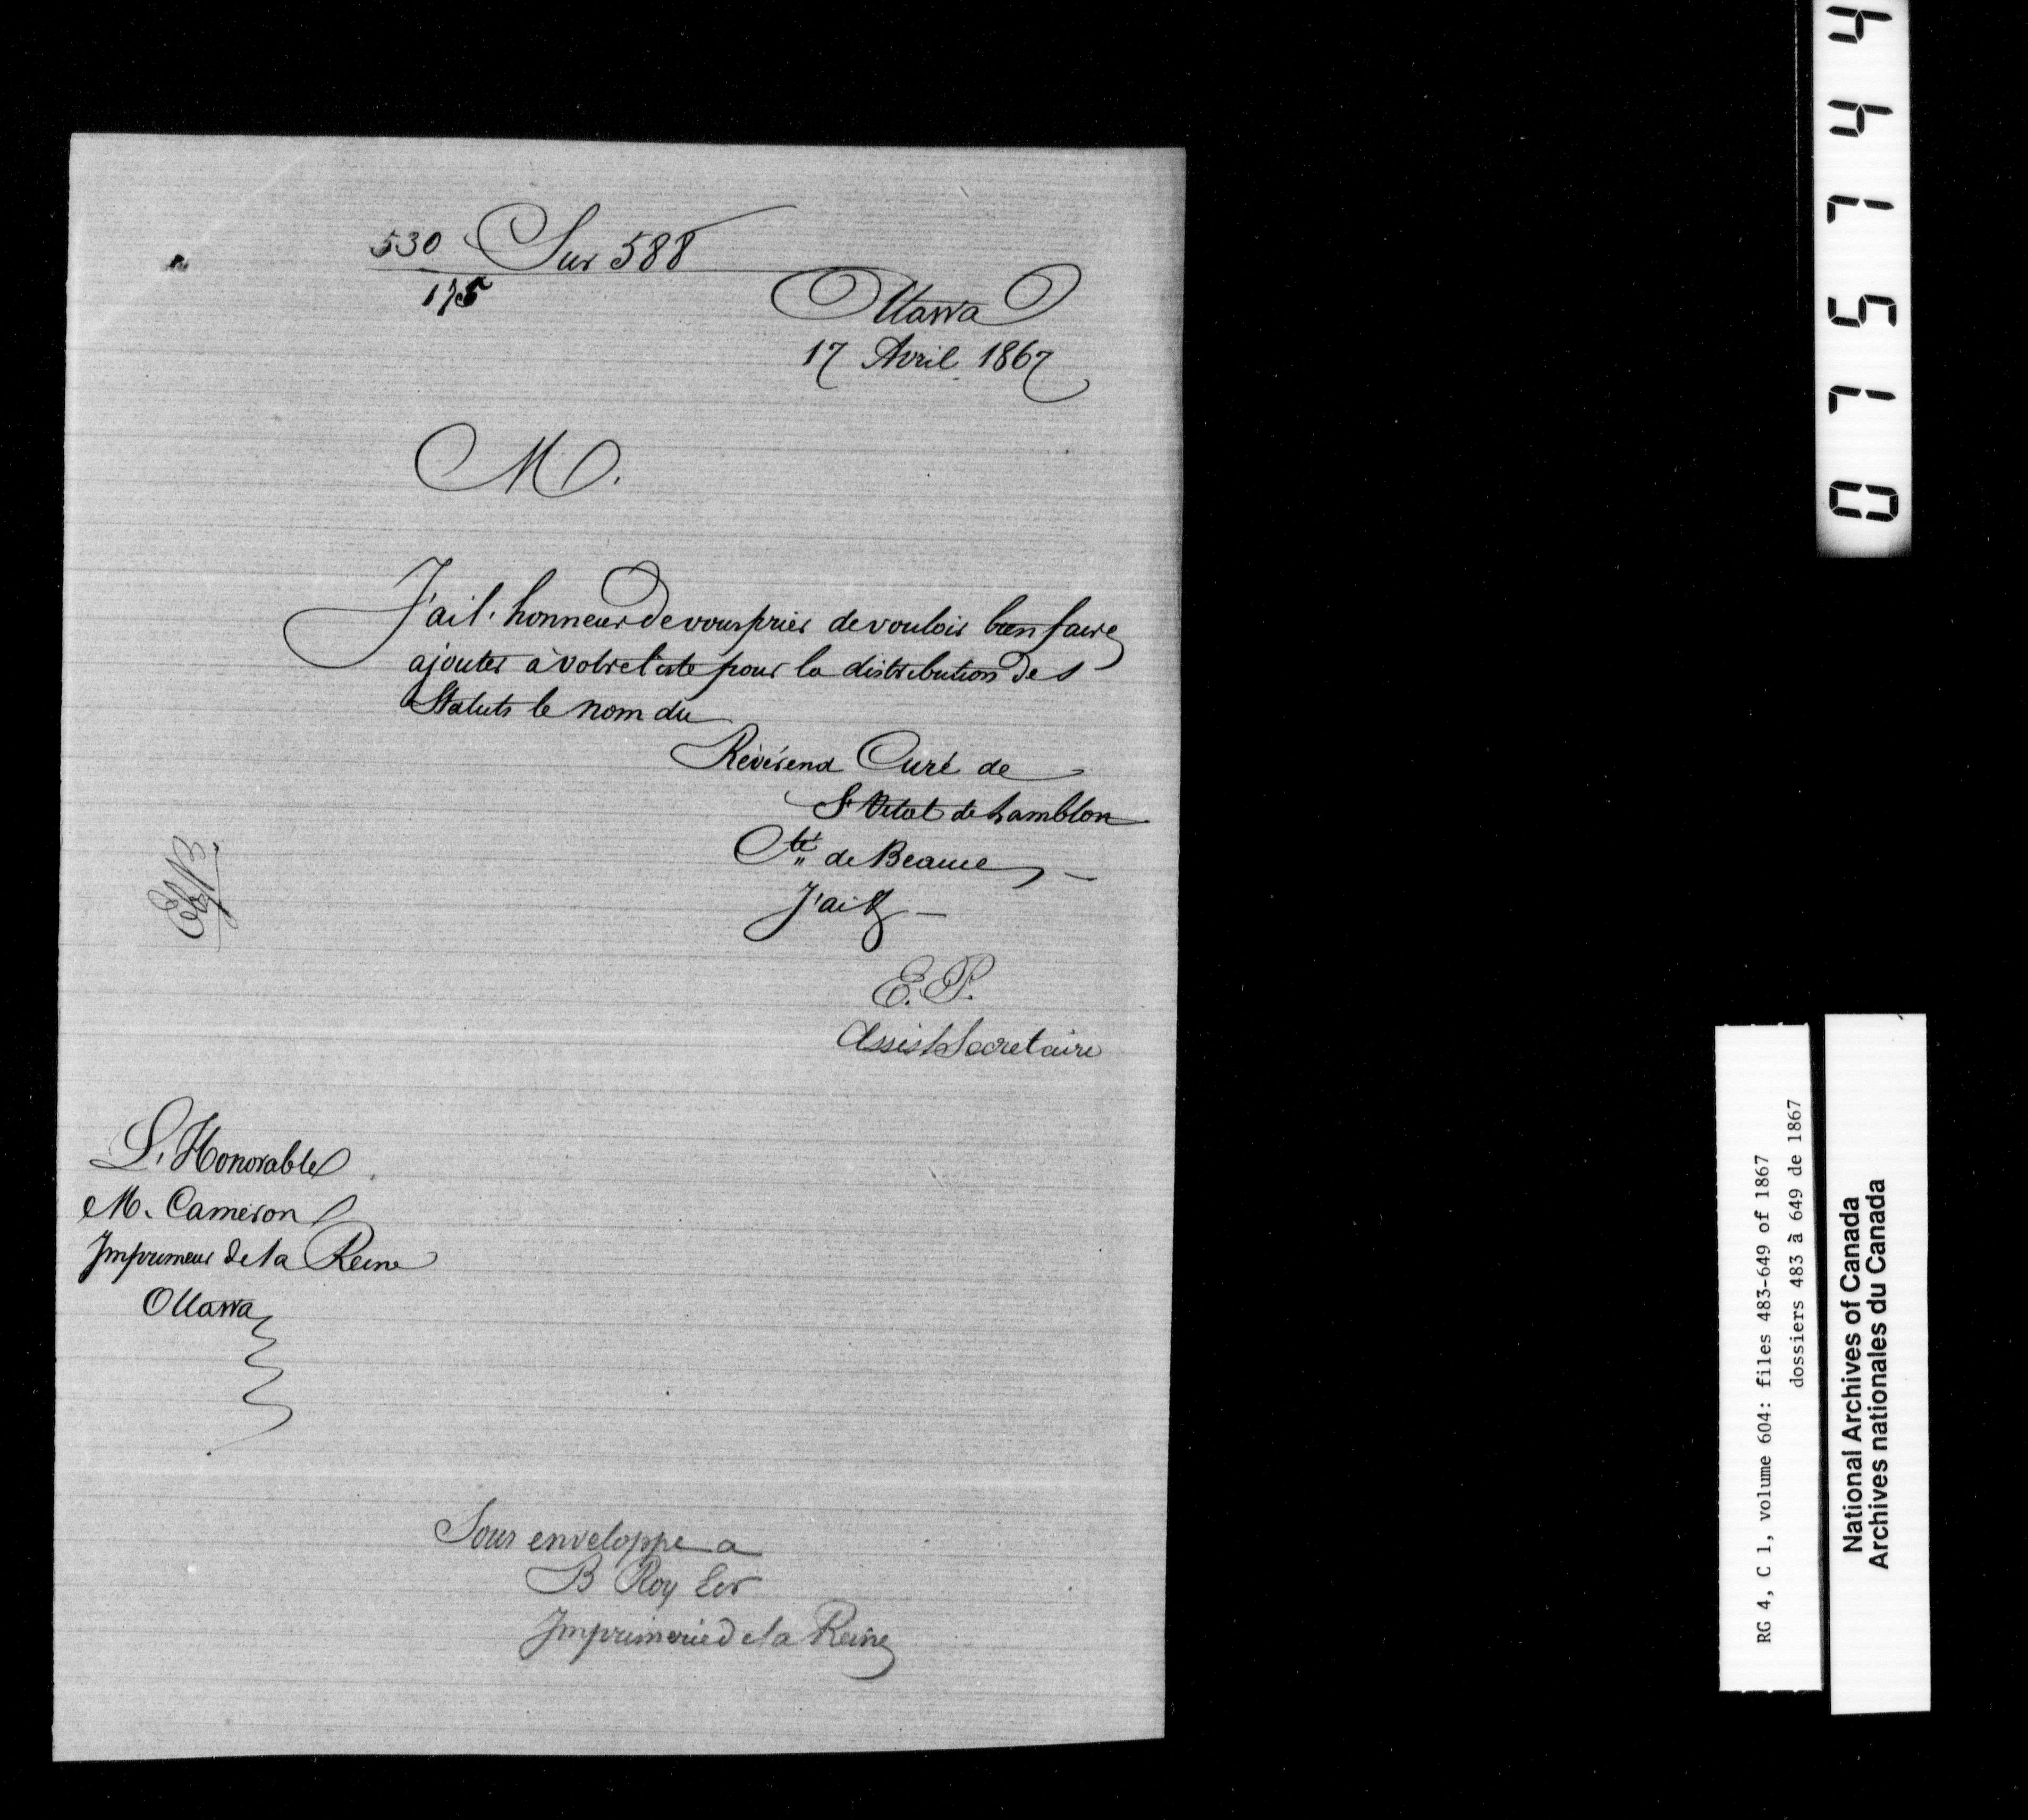 530 Sur 588
175
Ottawa
17 Avril 1867
M.
J'ai l'honneur de vous prier de vouloir bien faire
ajouter à votre liste pour la distribution des
Statuts le nom du
Révérend Curé de
St Vital de Lambton
Cté de Beauce, —
J'ai &
E. P.
Assist Secretaire
L'Honorable
M. Cameron
Imprimeur de la Reine
Ottawa
Sous enveloppe a
B Roy Ecr
Imprimerie de la Reine
075744
RG 4, C 1, volume 604: files 483-649 of 1867
dossiers 483 à 649 de 1867
National Archives of Canada
Archives nationales du Canada